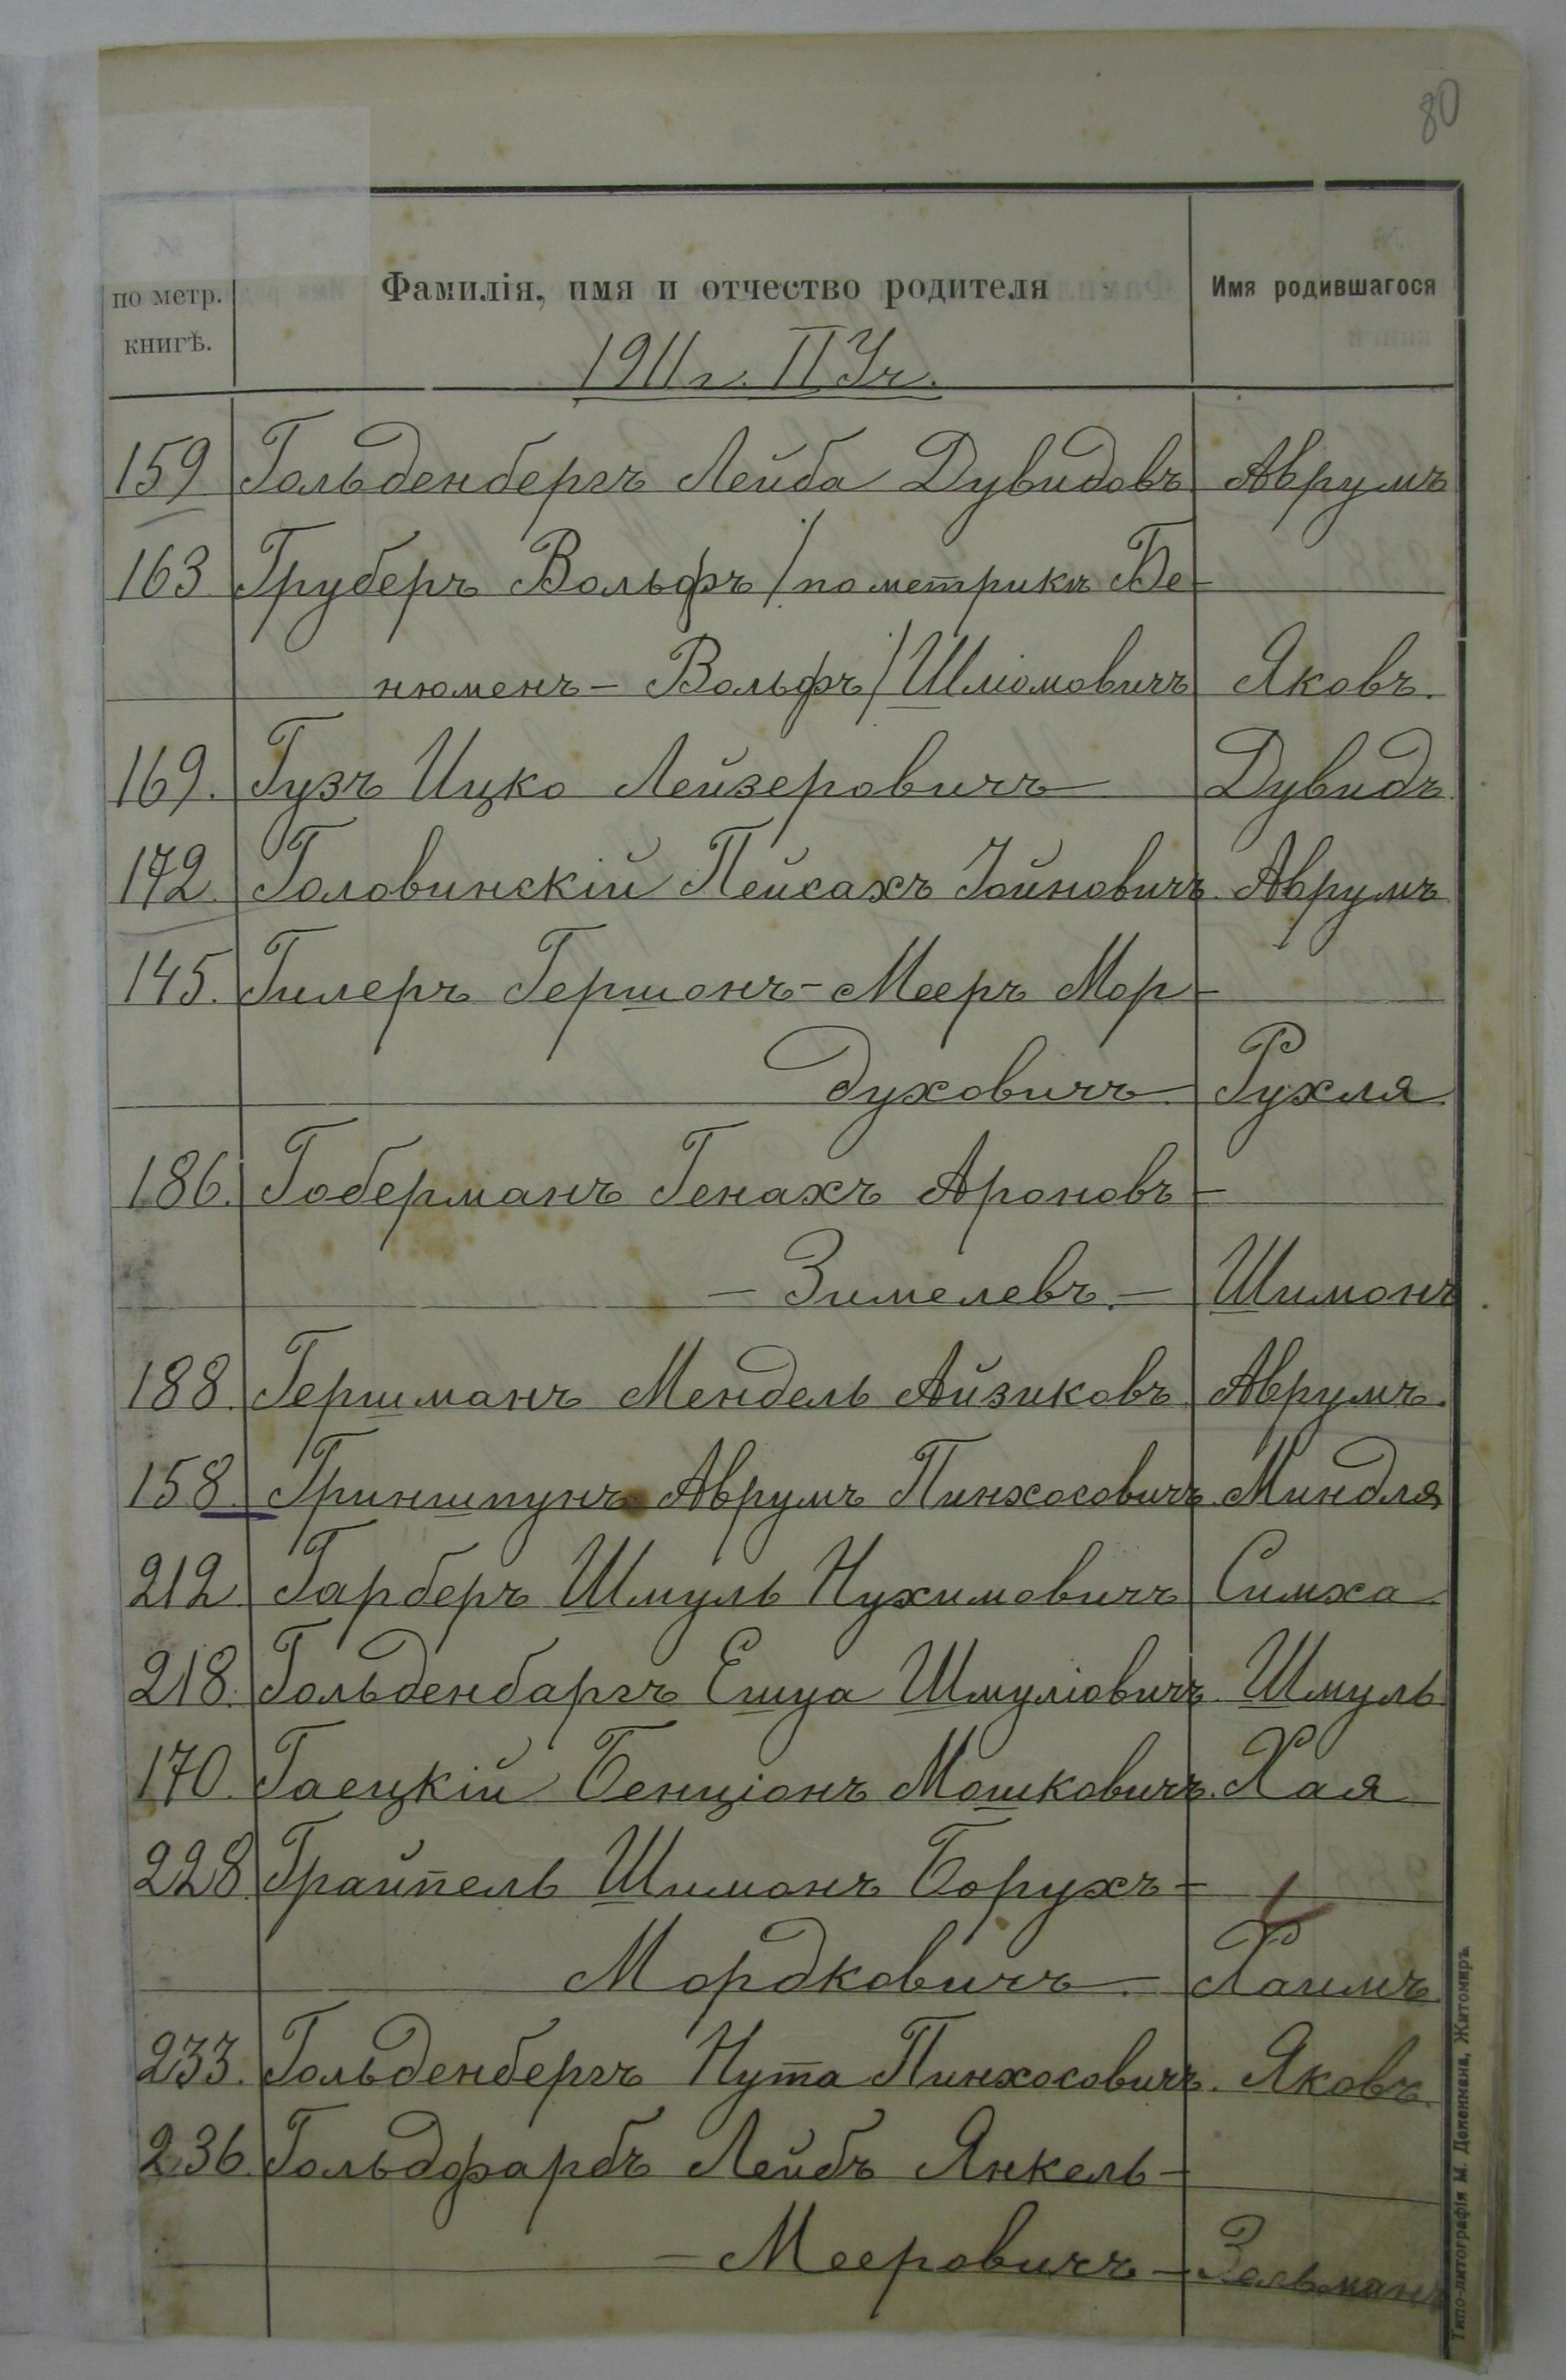 80
по метр. книгѣ. Фамилія, имя и отчество родителя Имя родившагося
1911 г. II Уч.
159 Гольденбергъ Лейба Дувидовъ Аврумъ
163 Груберъ Вольфъ /по метрикѣ Бе-
нюменъ - Вольфъ/ Шліомовичъ Яковъ.
169. Гузъ Ицко Лейзеровичъ Дувидъ
172. Головинскій Пейсахъ Іойновичъ. Аврумъ
145. Гилеръ Гершонъ-Мееръ Мор-
духовичъ Рухля
186. Гоберманъ Генахъ Ароновъ-
- Зимелевъ. - Шимонъ
188. Гершманъ Мендель Айзиковъ. Аврумъ.
158. Гриншпунъ Аврумъ Пинхосовичъ. Миндля
212. Гарберъ Шмуль Нухимовичъ Симха
218. Гольденбаргъ Ешуа Шмуліовичъ. Шмуль
170. Гаецкій Бенціонъ Мошковичъ. Хая
228. Грайпель Шимонъ Борухъ-
Мордковичъ. Хаимъ
233. Гольденбергъ Нута Пинхосовичъ. Яковъ.
236. Гольдфарбъ Лейбъ Янкель-
- Мееровичъ - Зельманъ
Типо-литографія М. Дененмана, Житомиръ